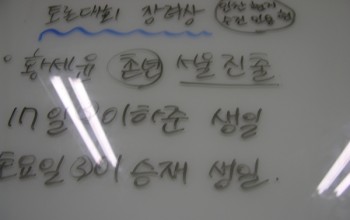 토론대회 장려상
황세윤 존변 서울 진출
17일 이하준 생일
토요일 이승재 생일.